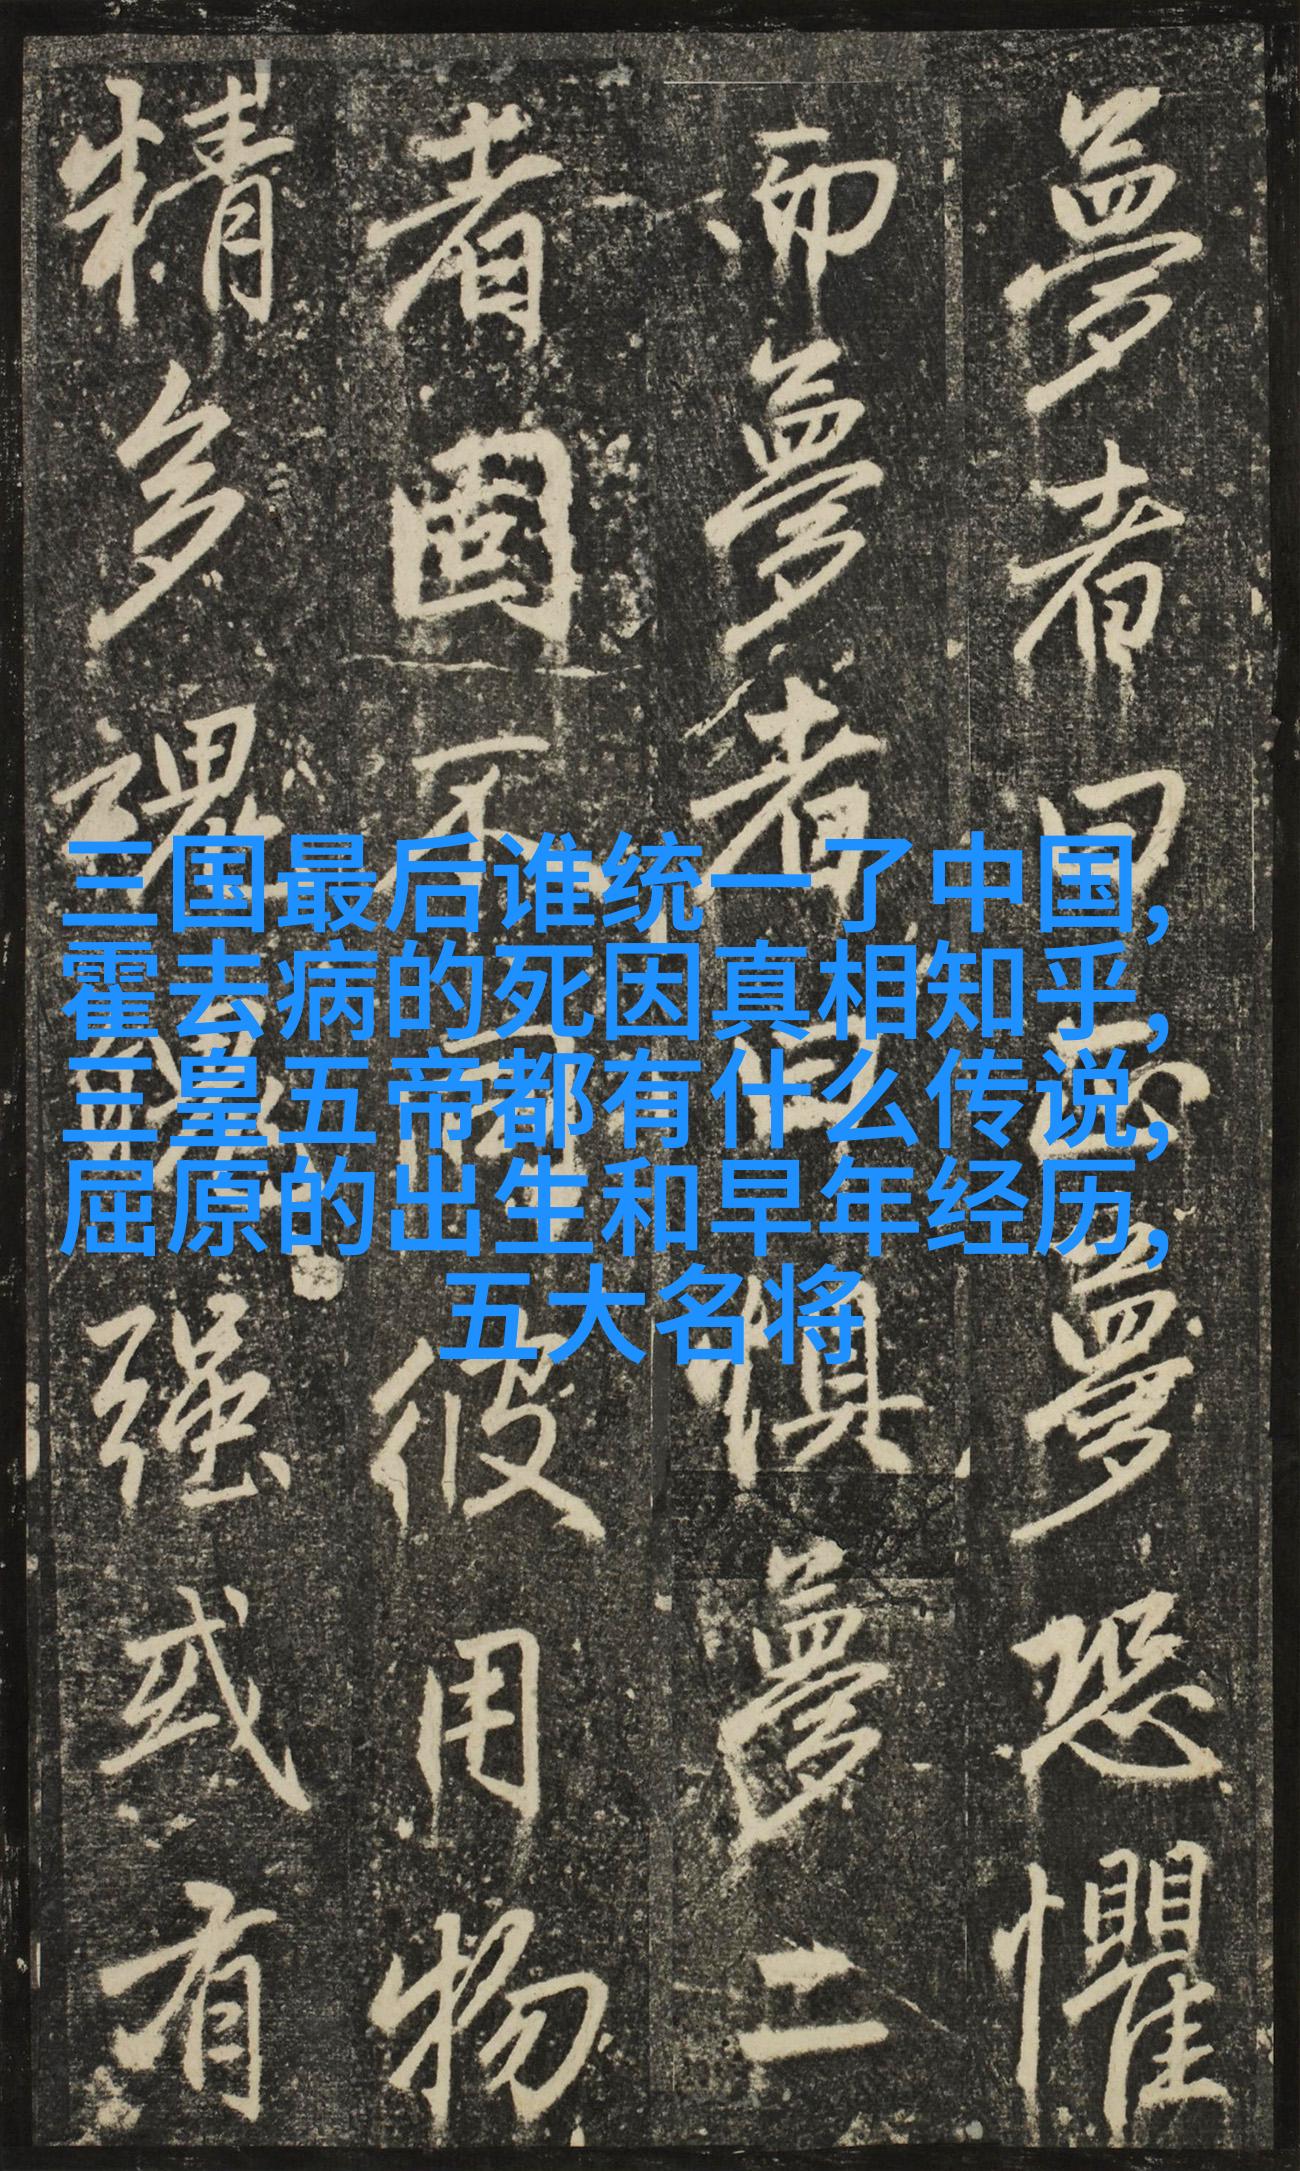 夢者曰夢恐懼
而夢者曰懼夢二
者固不彼用物
精多魂强或有
三国最后谁统一了中国,
霍去病的死因真相知乎,
三皇五帝都有什么传说,
屈原的出生和早年经历,
五大名将